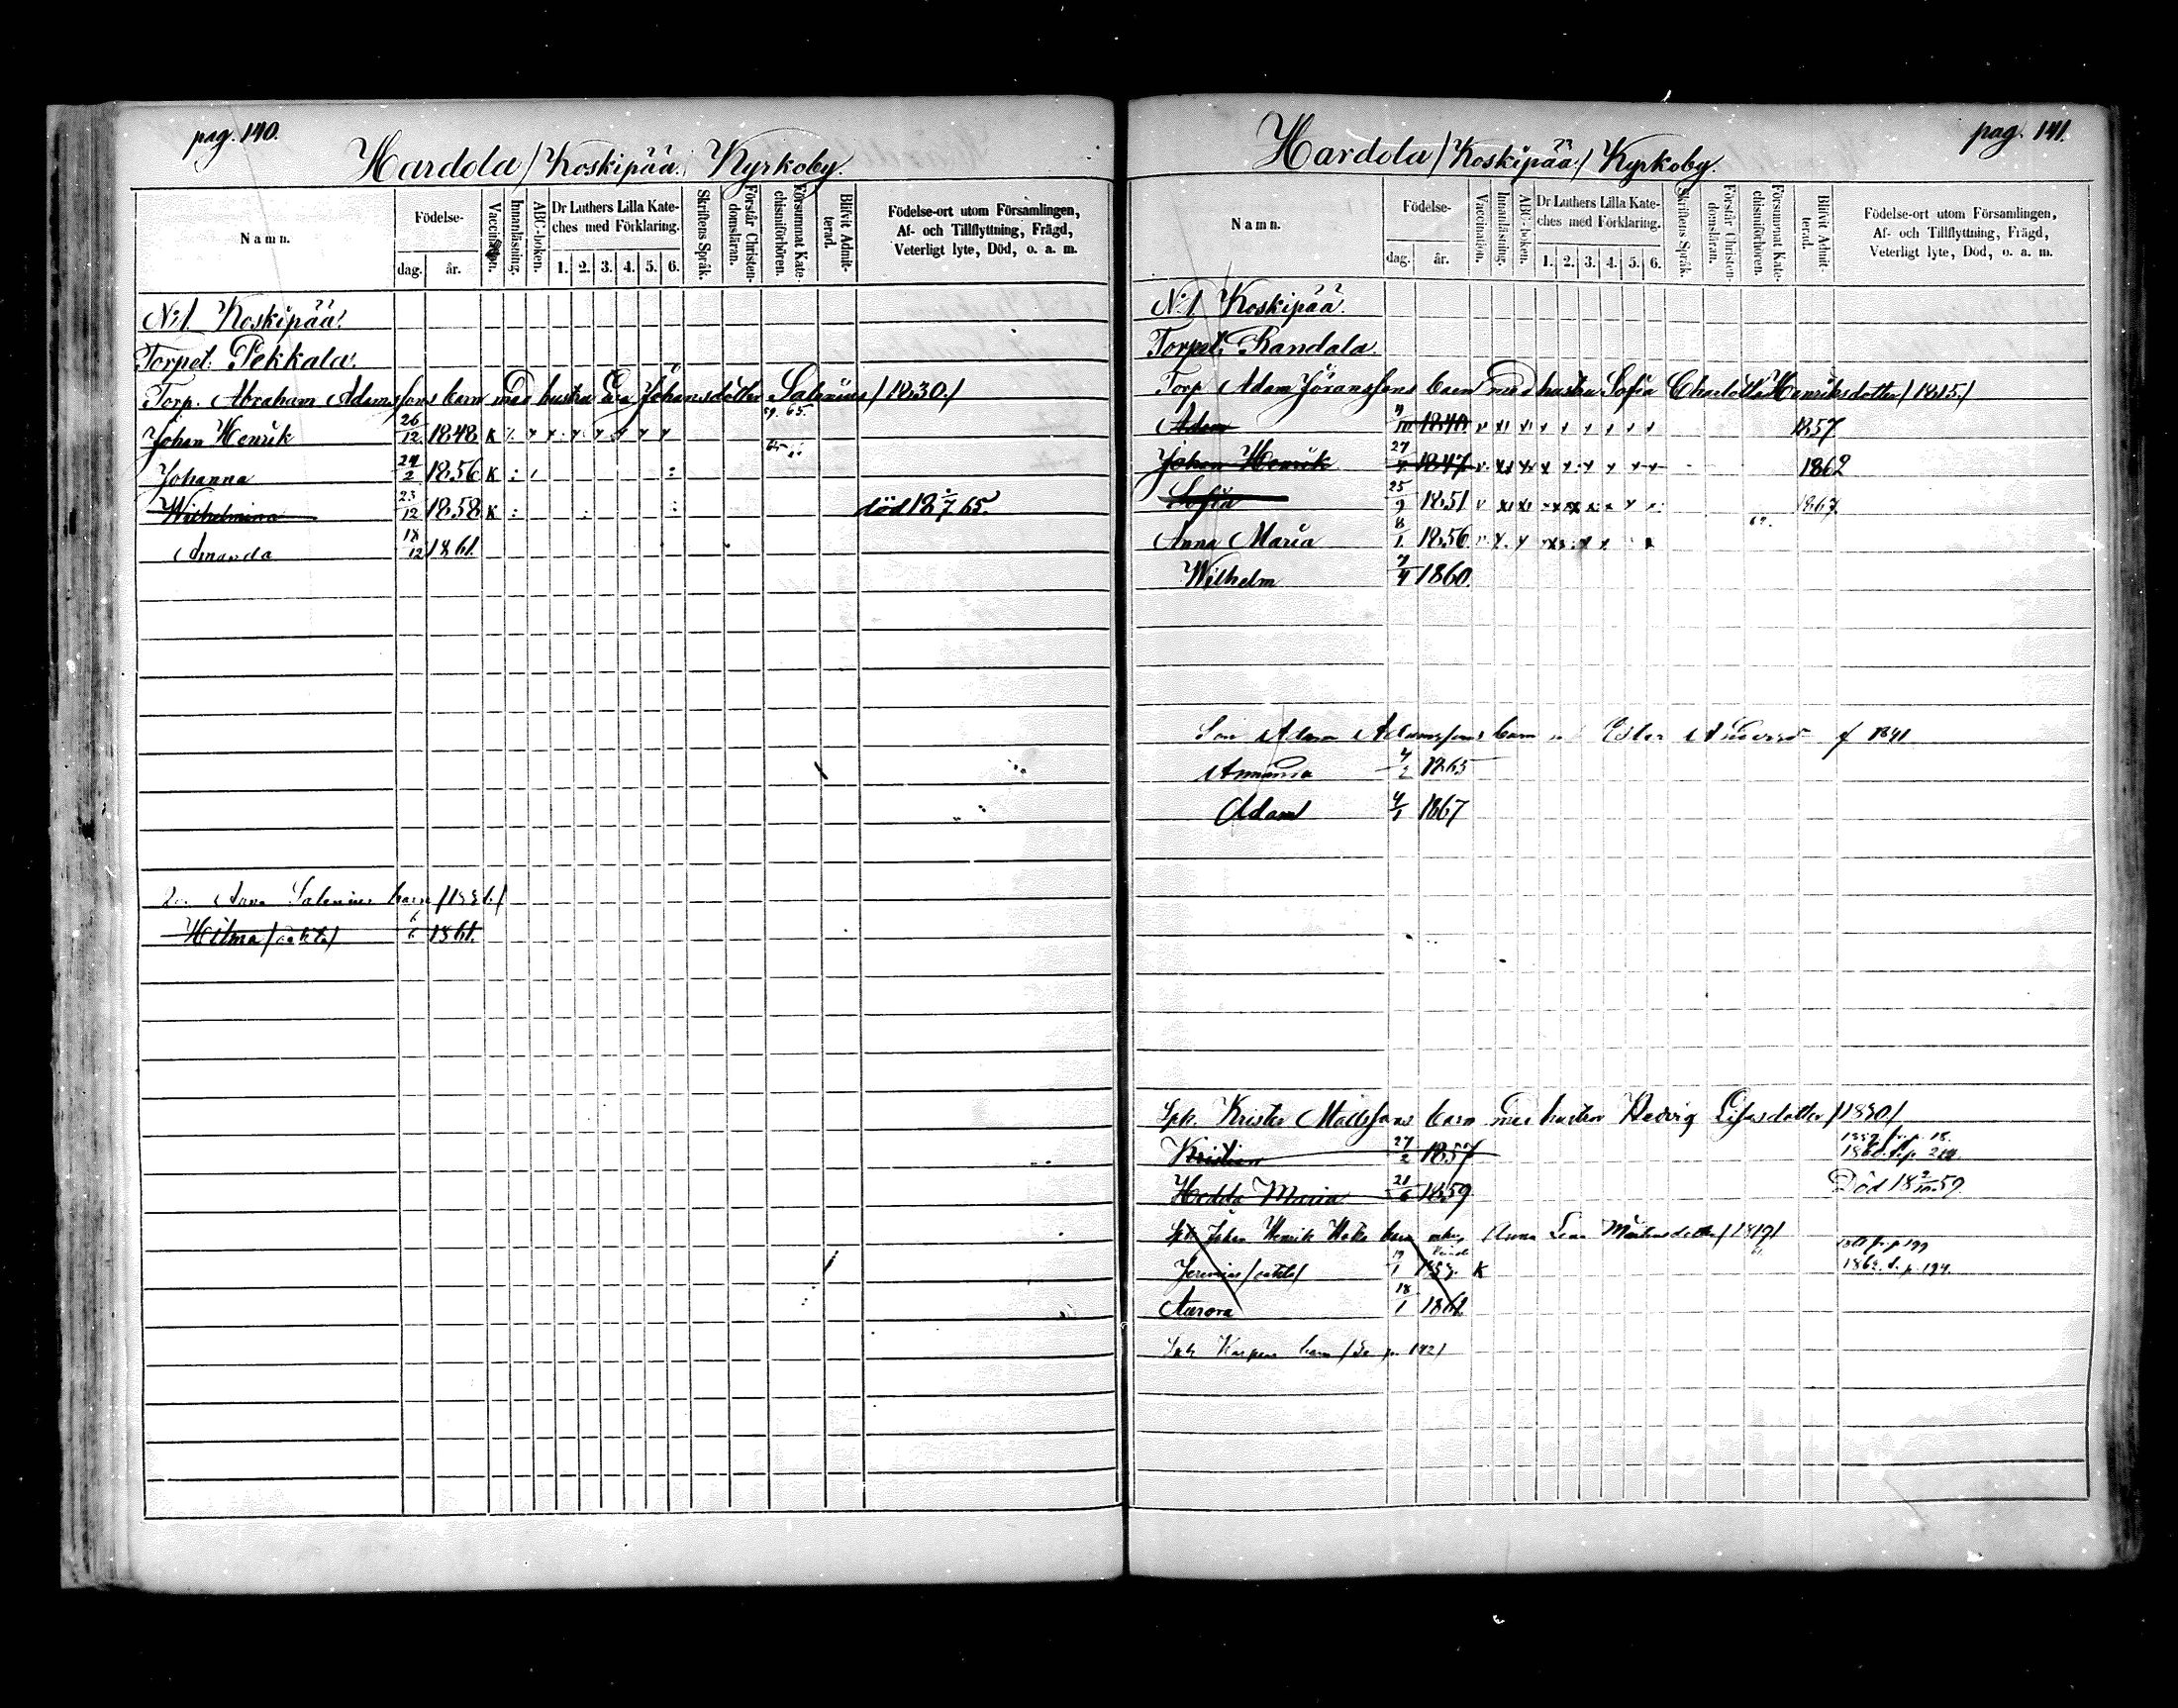 pag. 140.
Hardola / Koskipää / Kyrkoby.
Namn.
Födelse-
dag. år.
Vaccination.
Innanläsning.
ABC-boken.
Dr Luthers Lilla Kate-
ches med Förklaring.
1. 2. 3. 4. 5. 6.
Skriftens Språk.
Förstår Christen-
domsläran.
Försummat Kate-
chismiförhören.
Blifvit Admit-
terad.
Födelse-ort utom Församlingen,
Af- och Tillflyttning, Frägd,
Veterligt lyte, Död, o. a. m.
N:1. Koskipää.
Torpet: Pekkala.
Torp. Abraham Adamssons barn med hustru Eva Johansdotter Salenius / 1830./
Johan Henrik 26/12 1848 K
Johanna 24/2 1856 K
Wilhelmina 23/12 1858 K död 18 /7 65.
Amanda 18/12 1861.
Anna Salenius barn
Hilma / oäkta / 6/6 1861.
pag. 141.
Hardola / Koskipää / Kyrkoby.
Namn.
Födelse-
dag. år.
Vaccination.
Innanläsning.
ABC-boken.
Dr Luthers Lilla Kate-
ches med Förklaring.
1. 2. 3. 4. 5. 6.
Skriftens Språk.
Förstår Christen-
domsläran.
Försummat Kate-
chismiförhören.
Blifvit Admit-
terad.
Födelse-ort utom Församlingen,
Af- och Tillflyttning, Frägd,
Veterligt lyte, Död, o. a. m.
N:1 Koskipää.
Torpet: Randala.
Torp. Adam Jöranssons barn med hustru Sofia Charlotta Henriksdotter / 1815./
Adam 1857
Johan Henrik 27/4 1847 1862
Sofia 25/9 1851 1867
Anna Maria 8/1 1856
Wilhelm 7/4 1860.
Son Adam Adamssons barn Ester f 1841
Amanda 4/2 1865
Adam 4/1 1867
Krister Matssons barn med hustru Hedvig
Kristian 27/2 1857
Hedda Maria 21/6 1859 Död 18 59.
Johan Henrik barn Anna Lena
Jeremias / oäkta / 19/1 K
Aurora 18/1 1861.
barn / Se p. 142 /